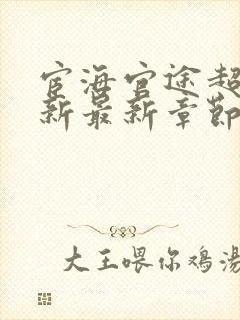 宦海官途超
新最新章节
大王喂你鸡汤